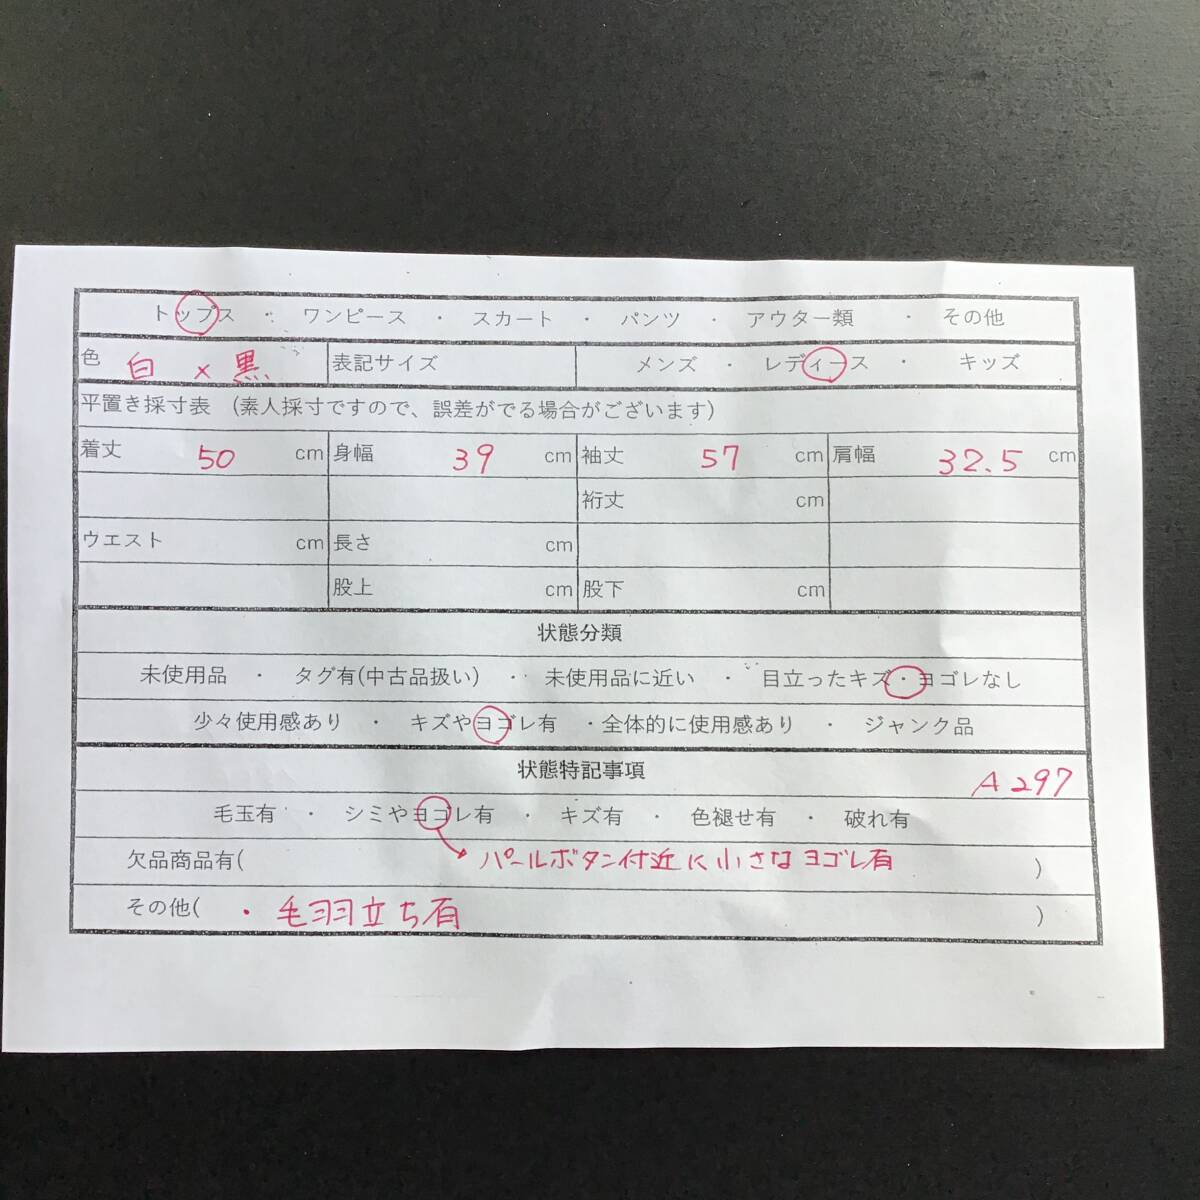 トップス ・ ワンピース ・ スカート ・ パンツ ・ アウター類 ・ その他
色 白 × 黒 表記サイズ メンズ ・ レディース ・ キッズ
平置き採寸表 (素人採寸ですので、誤差がでる場合がございます)
着丈 50 cm 身幅 39 cm 袖丈 57 cm 肩幅 32.5 cm
裄丈 cm
ウエスト cm 長さ cm
股上 cm 股下 cm
状態分類
未使用品 ・ タグ有(中古品扱い) ・ 未使用品に近い ・ 目立ったキズ・ヨゴレなし
少々使用感あり ・ キズやヨゴレ有 ・全体的に使用感あり ・ ジャンク品
状態特記事項 A297
毛玉有 ・ シミやヨゴレ有 ・ キズ有 ・ 色褪せ有 ・ 破れ有
欠品商品有( パールボタン付近に小さなヨゴレ有 )
その他( ・毛羽立ち有 )